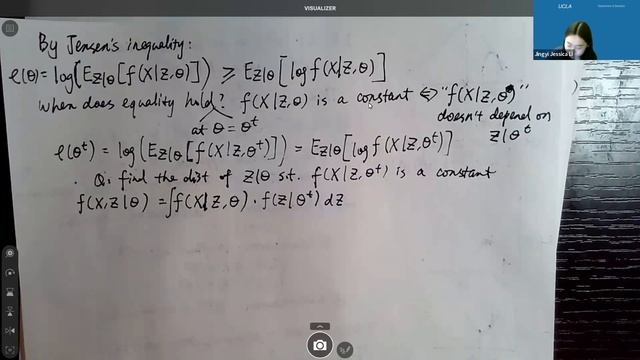 VISUALIZER
UCLA
Jingyi Jessica Li
By Jensen's inequality:
ℓ(θ) = log(E_{Z|θ}[f(X|Z,θ)]) ⩾ E_{Z|θ}[log f(X|Z,θ)]
When does equality hold? f(X|Z,θ) is a constant ⇔ "f(X|Z,θ)"
at θ = θ^t
doesn't depend on
Z|θ^t
ℓ(θ^t) = log(E_{Z|θ}[f(X|Z,θ^t)]) = E_{Z|θ}[log f(X|Z,θ^t)]
Q: find the dist of Z|θ s.t. f(X|Z,θ^t) is a constant
f(X,Z|θ) = ∫f(X|Z,θ) · f(Z|θ^t) dZ